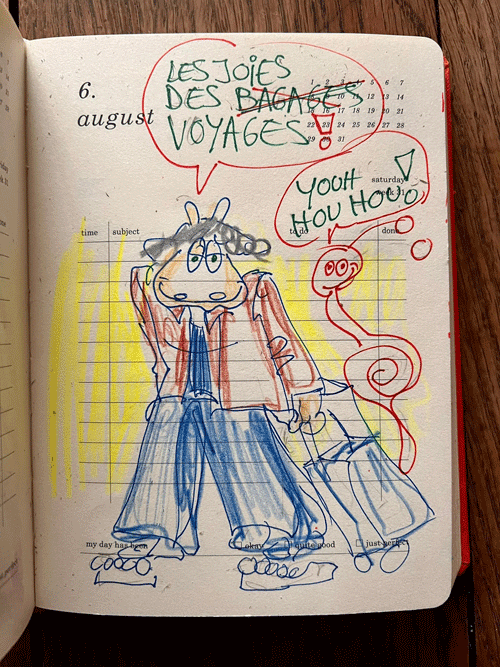 LES JOIES
DES BAGAGES
VOYAGES!
6.
august
1 2 3 4 5 6 7
10 12 13 14
15 16 17 18 19 20 21
22 23 24 25 26 27 28
29 31
YOUH
HOU HOU!
saturday
week 31
time subject to do done
my day has been okay quite good just perfect